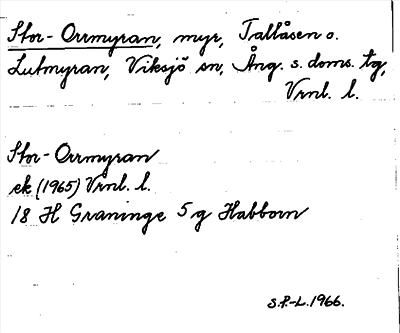 Stor-Orrmyran, myr, Tallåsen o.
Lutmyran, Viksjö sn, Ång. s. doms. tg,
Vrnl. l.
Stor-Orrmyran
ek (1965) Vrnl. l.
18 H Graninge 5 g Habborn
S.P.-L. 1966.